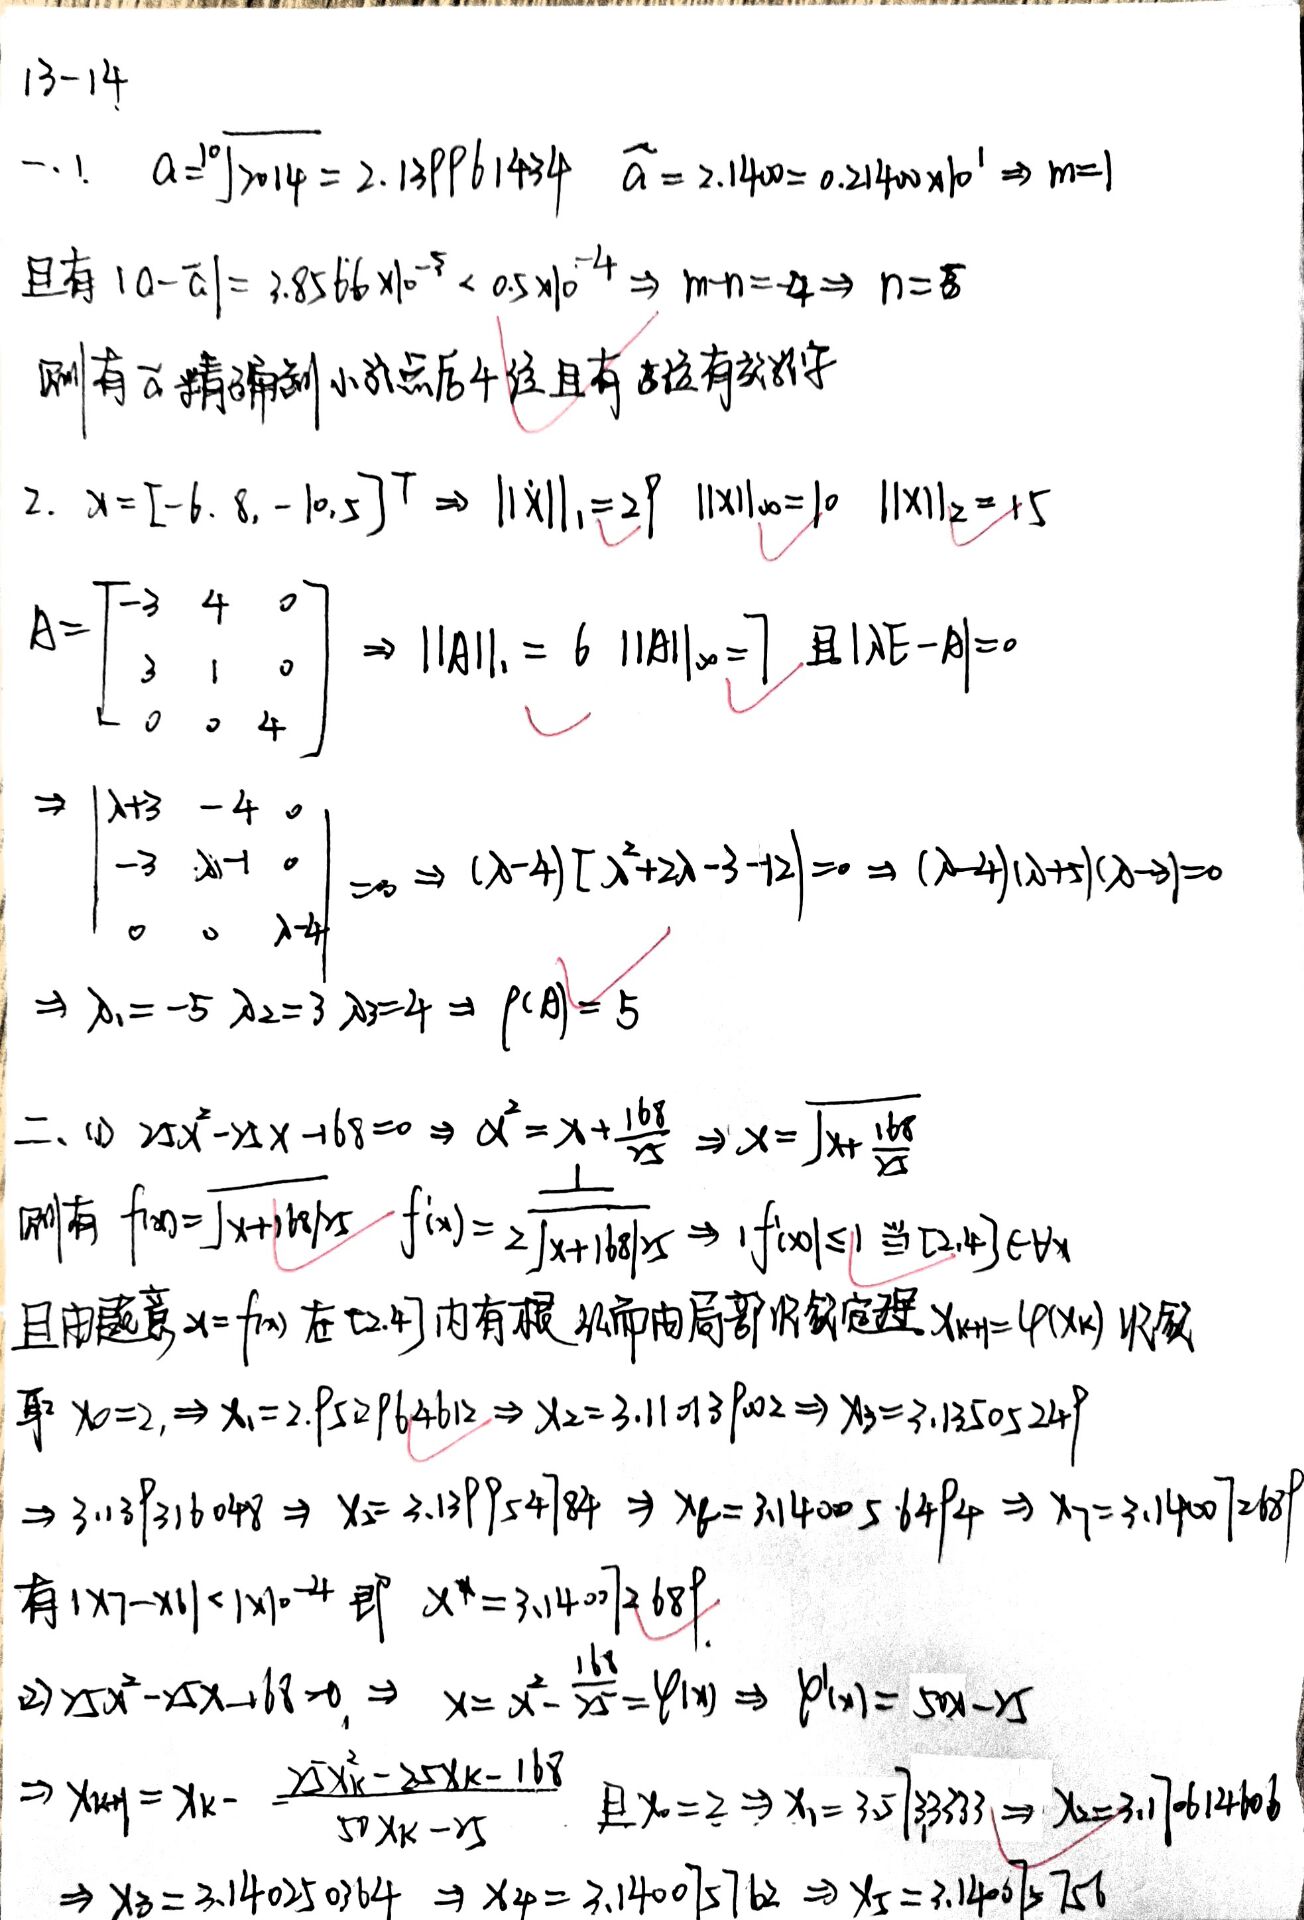 13-14
一.1. a=¹⁰√2014 = 2.139961434 ā = 2.1400 = 0.21400×10¹ ⇒ m=1
且有 |a-ā| = 3.8566×10⁻⁵ < 0.5×10⁻⁴ ⇒ m-n=-4 ⇒ n=5
则有 ā 精确到小数点后4位且有5位有效数字
2. x=[-6. 8. -10. 5]ᵀ ⇒ ||x||₁=29 ||x||∞=10 ||x||₂=15
A= [-3 4 0
3 1 0
0 0 4] ⇒ ||A||₁ = 6 ||A||∞=7 且|λE-A|=0
⇒ |λ+3 -4 0
-3 λ-1 0
0 0 λ-4| =0 ⇒ (λ-4)[λ²+2λ-3-12]=0 ⇒ (λ-4)(λ+5)(λ-3)=0
⇒ λ₁=-5 λ₂=3 λ₃=4 ⇒ ρ(A)=5
二、(1) 25x²-25x-168=0 ⇒ x²=x+168/25 ⇒ x=√(x+168/25)
则有 f(x)=√(x+168/25) f'(x)=1/(2√(x+168/25)) ⇒ |f'(x)|≤1 当[2.4]∈∀x
且由题意 x=f(x) 在[2.4]内有根 从而由局部收敛定理 xₖ₊₁=φ(xₖ) 收敛
取 x₀=2, ⇒ x₁=2.952964612 ⇒ x₂=3.110139002 ⇒ x₃=3.135305249
⇒ 3.139316048 ⇒ x₅=3.139954784 ⇒ x₆=3.140056494 ⇒ x₇=3.140072689
有 |x₇-x₆|<1×10⁻⁴ 即 x*=3.140072689.
2) 25x²-25x-168=0, ⇒ x=x²-168/25=φ(x) ⇒ φ'(x)=50x-25
⇒ xₖ₊₁=xₖ- (25xₖ²-25xₖ-168)/(50xₖ-25) 且x₀=2 ⇒ x₁=3.573333333 ⇒ x₂=3.170614606
⇒ x₃=3.140250364 ⇒ x₄=3.140075762 ⇒ x₅=3.140075756